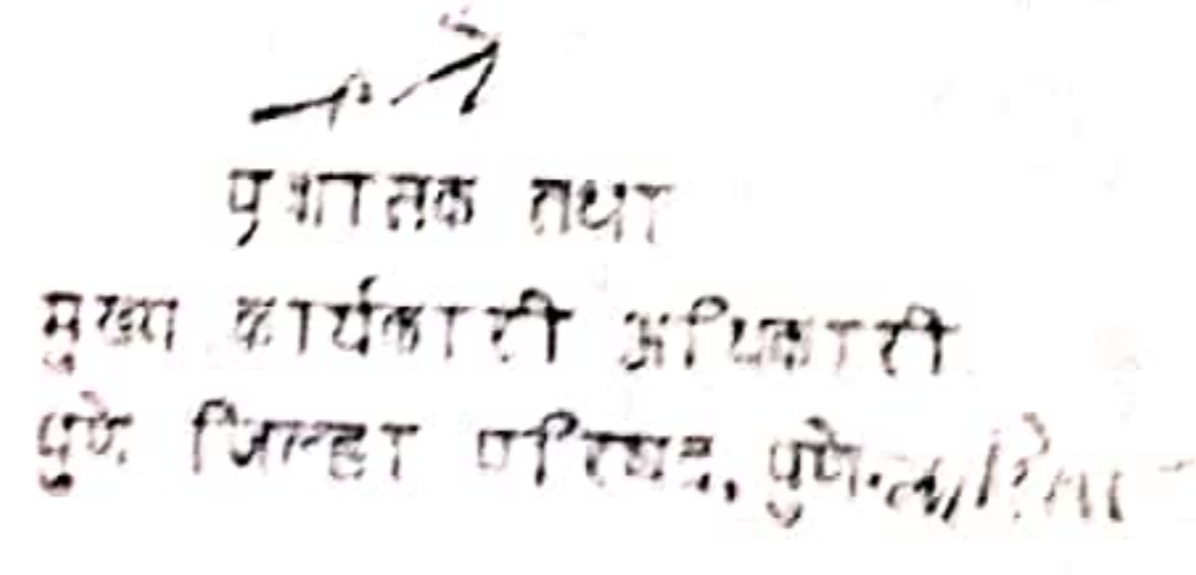 प्रशासक तथा
मुख्य कार्यकारी अधिकारी
पुणे जिल्हा परिषद, पुणे.करिता